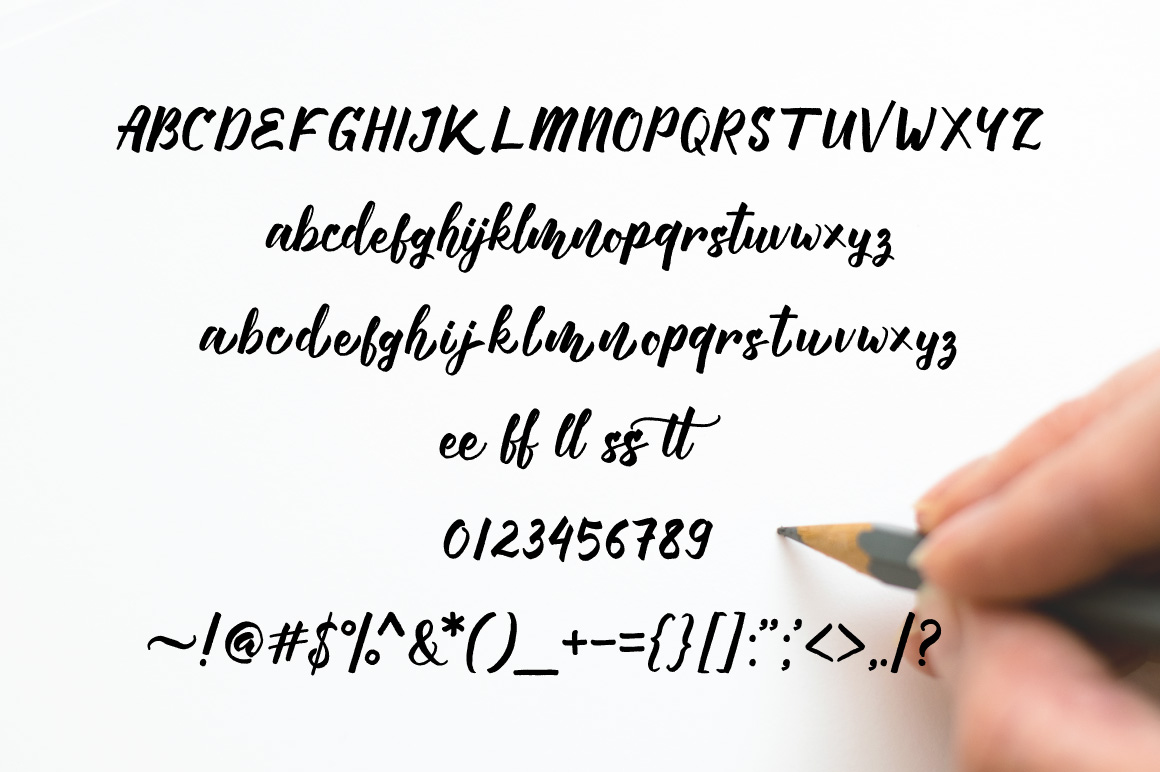 ABCDEFGHIJKLMNOPQRSTUVWXYZ
abcdefghijklmnopqrstuvwxyz
abcdefghijklmnopqrstuvwxyz
ee ff ll ss tt
0123456789
~!@#$%^&*()_+-={}[]:";'<>,./?